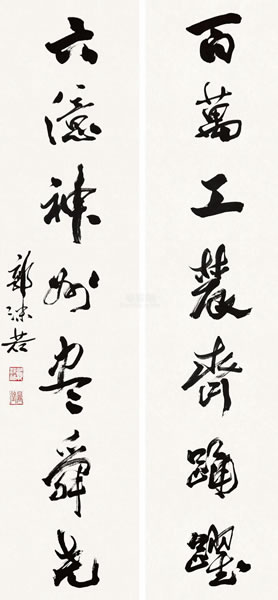 百萬工農齊踊躍
六億神州盡舜堯
郭沫若